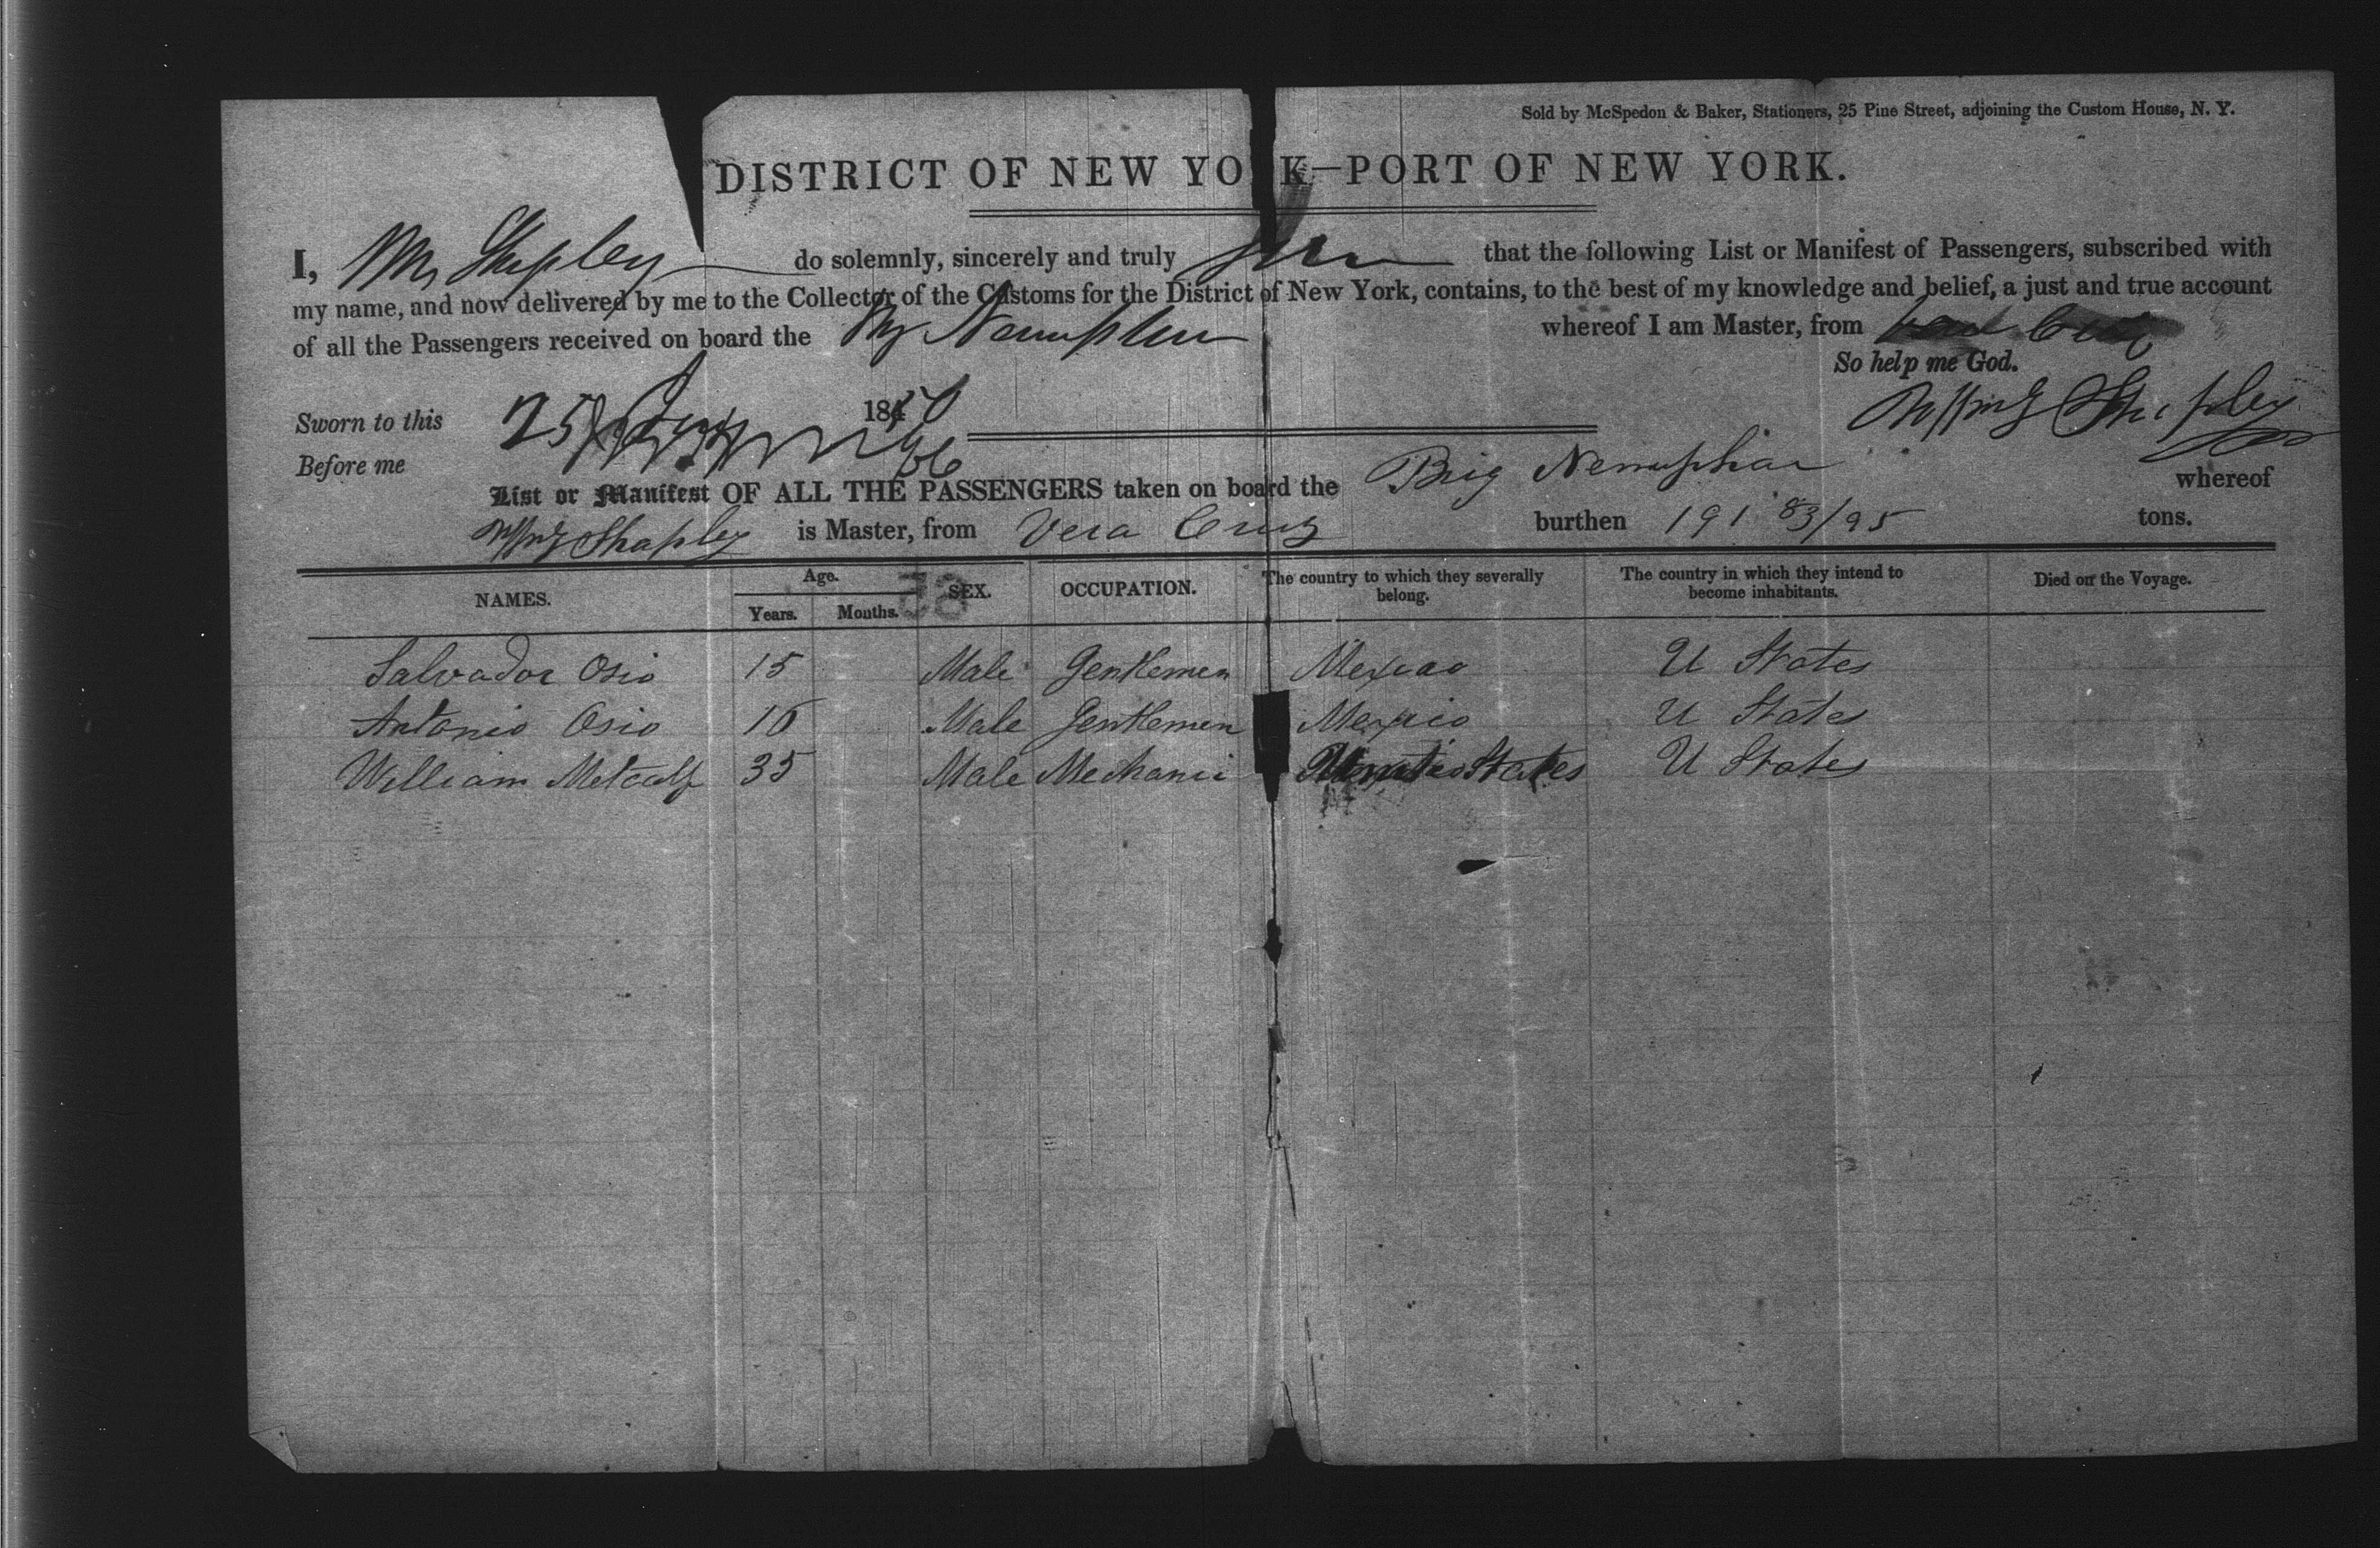 Sold by McSpedon & Baker, Stationers, 25 Pine Street, adjoining the Custom House, N. Y.
DISTRICT OF NEW YO K—PORT OF NEW YORK.
I, Shapley do solemnly, sincerely and truly that the following List or Manifest of Passengers, subscribed with
my name, and now delivered by me to the Collector of the Customs for the District of New York, contains, to the best of my knowledge and belief, a just and true account
of all the Passengers received on board the Nenuphar whereof I am Master, from Vera Cruz
So help me God.
Sworn to this 25 18
Shapley
Before me
List or Manifest OF ALL THE PASSENGERS taken on board the Brig Nenuphar whereof
Shapley is Master, from Vera Cruz burthen 191 83/95 tons.
NAMES. Age. Years. Months. SEX. OCCUPATION. The country to which they severally belong. The country in which they intend to become inhabitants. Died on the Voyage.
38
Salvador Osio 15 Male Gentlemen Mexico U States
Antonio Osio 16 Male Gentlemen Mexico U States
William Metcalf 35 Male Mechanic States U States